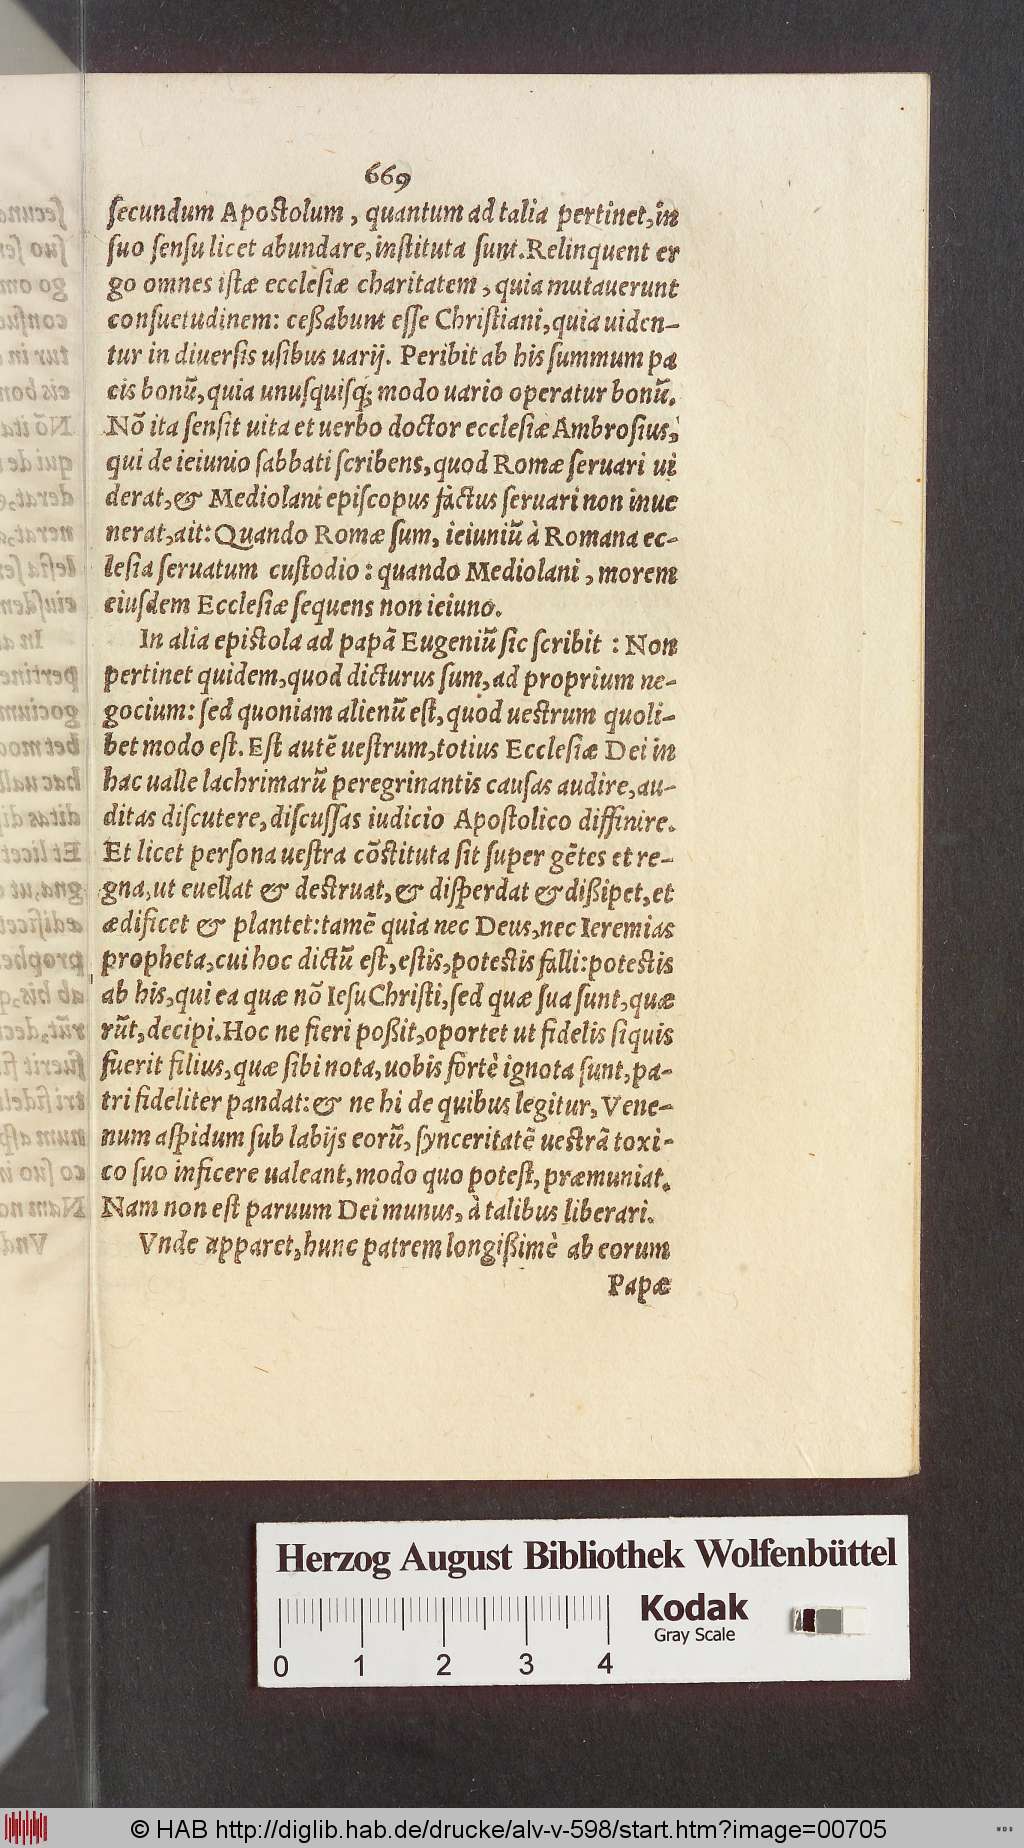 669
secundum Apostolum, quantum ad talia pertinet, in
suo sensu licet abundare, instituta sunt. Relinquent er
go omnes istæ ecclesiæ charitatem, quia mutauerunt
consuetudinem: ceßabunt esse Christiani, quia uiden-
tur in diuersis usibus uarij. Peribit ab his summum pa
cis bonū, quia unusquisq; modo uario operatur bonū.
Nō ita sensit uita et uerbo doctor ecclesiæ Ambrosius,
qui de ieiunio sabbati scribens, quod Romæ seruari ui
derat, & Mediolani episcopus factus seruari non inue
nerat, ait: Quando Romæ sum, ieiuniū à Romana ec-
lesia seruatum custodio: quando Mediolani, morem
eiusdem Ecclesiæ sequens non ieiuno.
In alia epistola ad papā Eugeniū sic scribit : Non
pertinet quidem, quod dicturus sum, ad proprium ne-
gocium: sed quoniam alienū est, quod uestrum quoli-
bet modo est. Est autē uestrum, totius Ecclesiæ Dei in
hac ualle lachrimarū peregrinantis causas audire, au-
ditas discutere, discussas iudicio Apostolico diffinire.
Et licet persona uestra cōstituta sit super gētes et re-
gna, ut euellat & destruat, & disperdat & dißipet, et
ædificet & plantet: tamē quia nec Deus, nec Ieremias
propheta, cui hoc dictū est, estis, potestis falli: potestis
ab his, qui ea quæ nō Iesu Christi, sed quæ sua sunt, quæ
rūt, decipi. Hoc ne fieri poßit, oportet ut fidelis si quis
fuerit filius, quæ sibi nota, uobis fortè ignota sunt, pa-
tri fideliter pandat: & ne hi de quibus legitur, Vene-
num aspidum sub labijs eorū, synceritatē uestrā toxi-
co suo inficere ualeant, modo quo potest, præmuniat.
Nam non est paruum Dei munus, à talibus liberari.
Vnde apparet, hunc patrem longißimè ab eorum
Papæ
Herzog August Bibliothek Wolfenbüttel
Kodak
Gray Scale
0 1 2 3 4
© HAB http://diglib.hab.de/drucke/alv-v-598/start.htm?image=00705